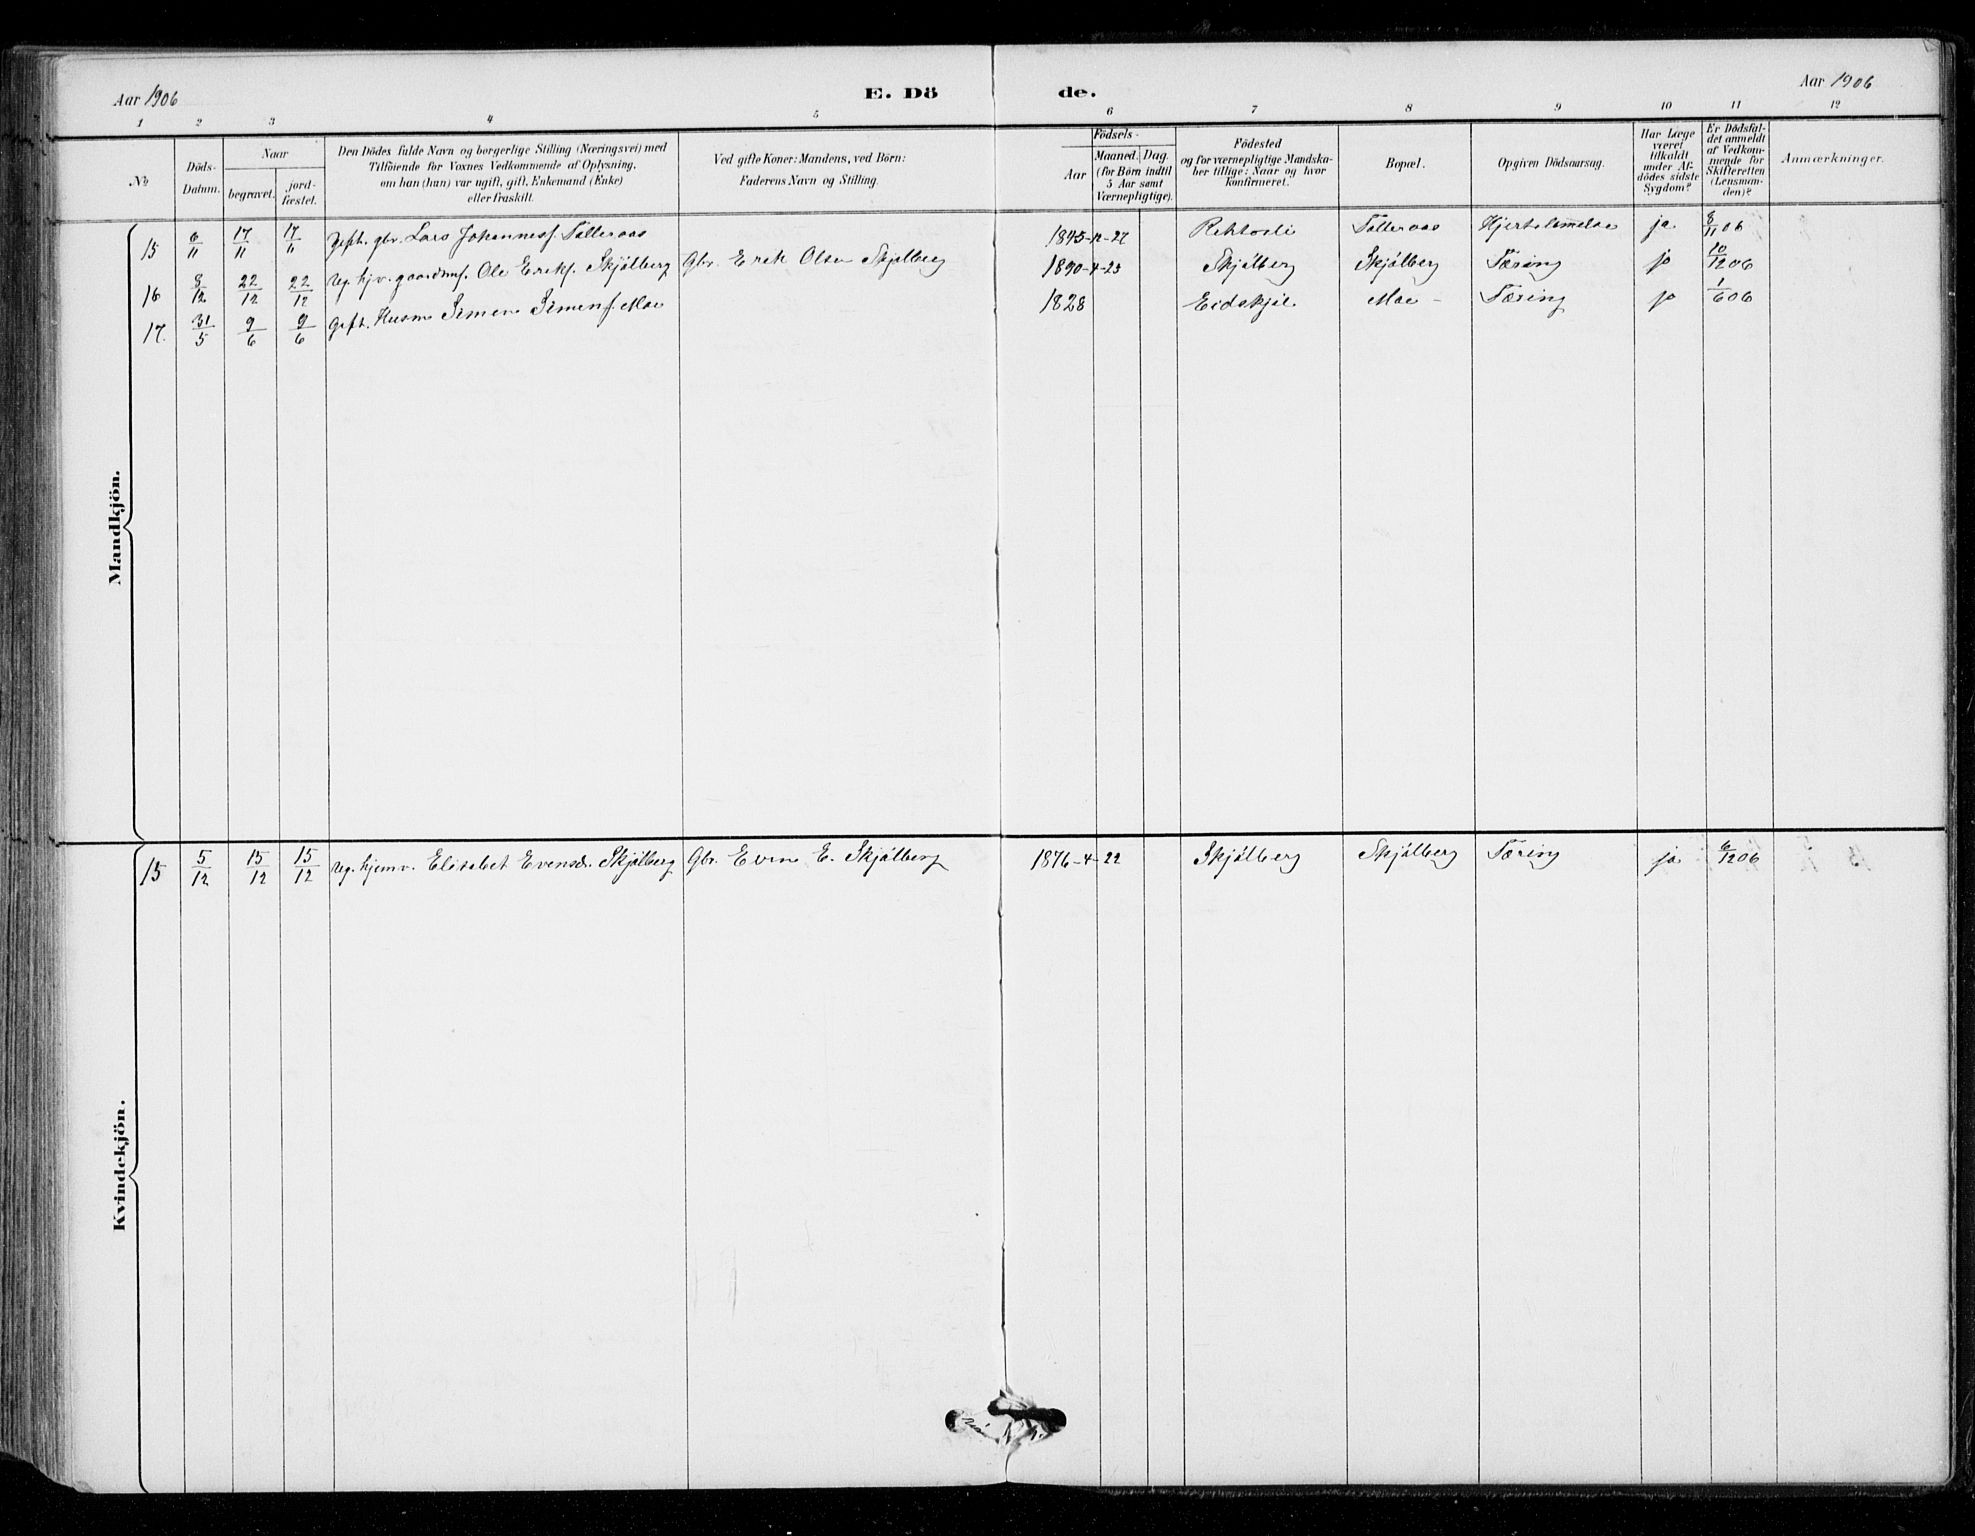 Aar 1906
E. Dö de.
Aar 1906
1 2 3 4 5 6 7 8 9 10 11 12
No
Döds-
Datum.
Naar
begravet.
jord-
fæstet.
Den Dödes fulde Navn og borgerlige Stilling (Næringsvei) med
Tilföiende for Voxnes Vedkommende af Oplysning,
om han (hun) var ugift, gift, Enkemand (Enke)
eller fraskilt.
Ved gifte Koner: Mandens, ved Börn:
Faderens Navn og Stilling.
Födsels-
Aar
Maaned. Dag.
(for Börn indtil
5 Aar samt
Værnepligtige).
Födested
og for værnepligtige Mandska-
ber tillige: Naar og hvor
konfirmeret.
Bopæl.
Opgiven Dödsaarsag.
Har Læge
været
tilkaldt
under Af-
dödes sidste
Sygdom?
Er Dödsfal-
det anmeldt
af Vedkom-
mende for
Skifteretten
(Lensman-
den)?
Anmærkninger.
Mandkjön.
15 6/11 17/11 17/11 gift. gbr. Lars Johannesf. Tølleraas 1845-12-27 Tølleraas ja 8/11 06
16 8/12 22/12 22/12 ug. hjv. gaardmf. Ole Erikf. Skjølberg Gbr. Erik Olsen Skjølberg 1890-4-23 Skjølberg Skjølberg Tæring ja 10/12 06
17. 31/5 9/6 9/6 gift. Husm Simen Simenf. Moe 1828 Eidskjøl Moe - Tæring ja 1/6 06
Kvindekjön.
15 5/12 15/12 15/12 ug. hjemv. Elisabet Evensdr. Skjølberg Gbr. Even E. Skjølberg 1876-4-22 Skjølberg Skjølberg Tæring ja 6/12 06